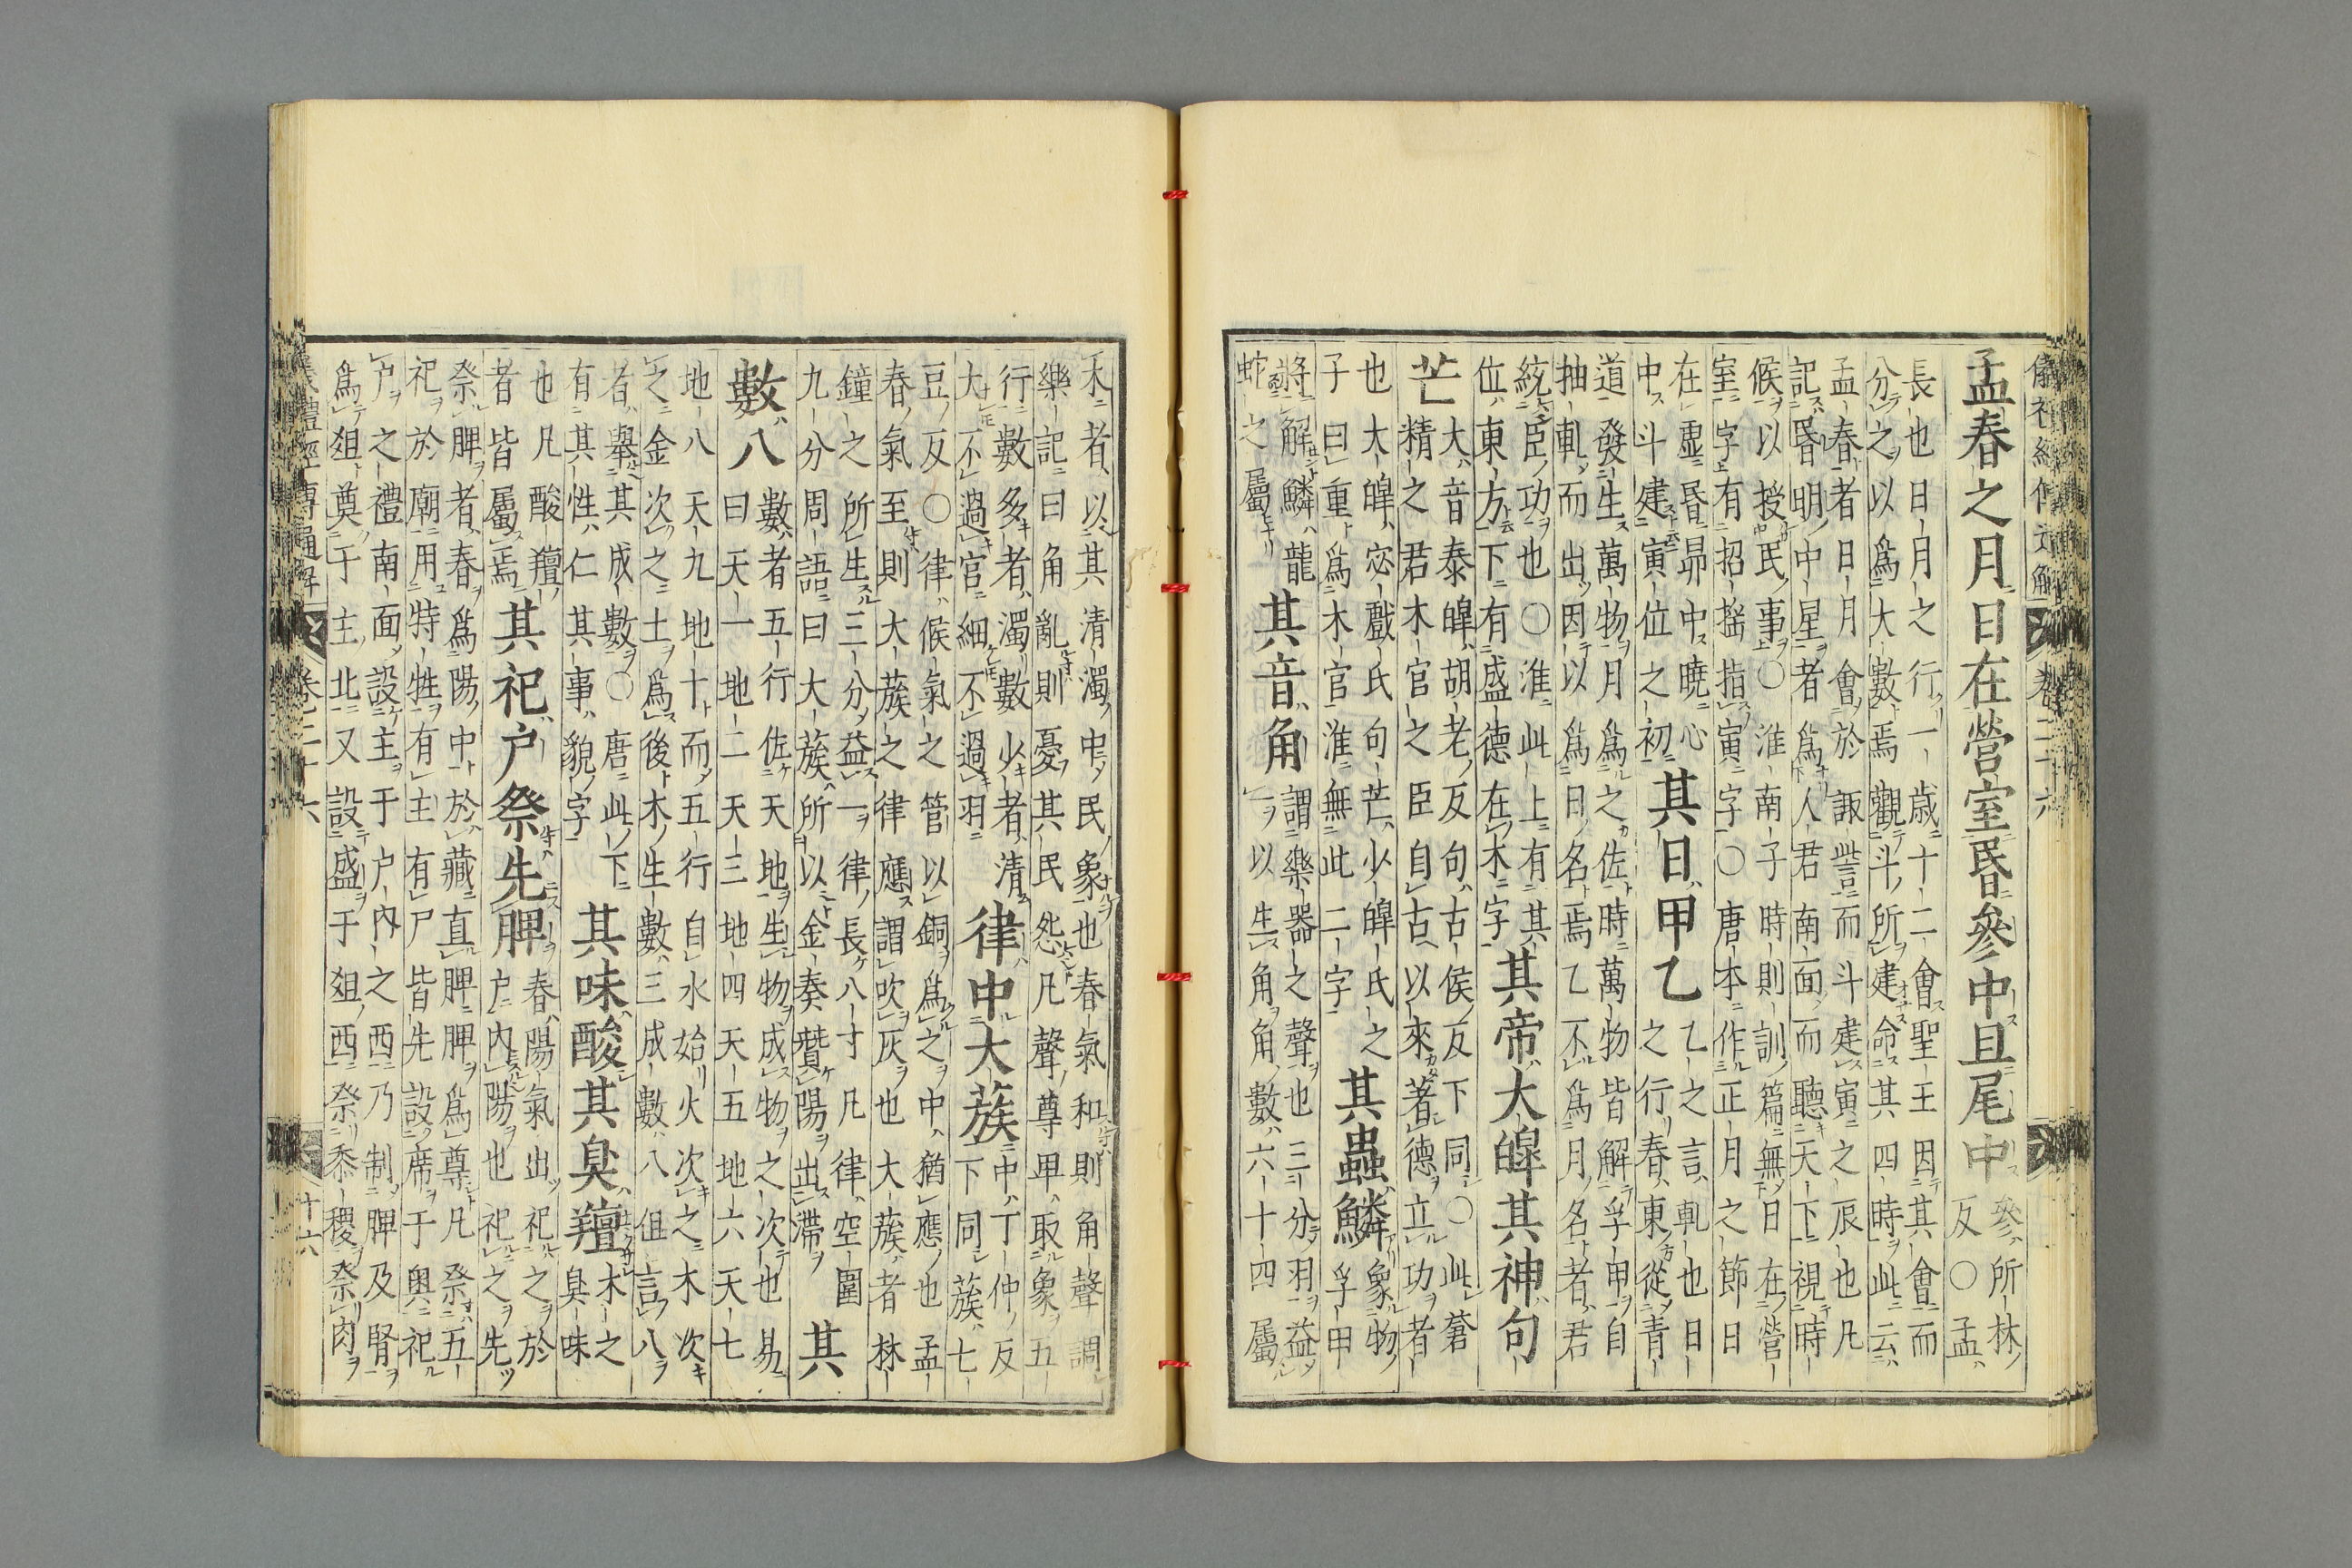 孟春之月日在營室昏參中旦尾中 參所林
反〇孟
長也日月之行一歳十二會聖王因其會而
分之以爲大數焉觀斗所建命其四時此云
孟春者日月會於諏訾而斗建寅之辰也凡
記昏明中星者爲人君南面而聽天下視時
候以授民事〇淮南子時則訓篇無日在營
室字有招搖指寅字〇唐本作正月之節日
在虛昏昴中曉心
中斗建寅位之初
其日甲乙
乙之言軋也日
之行春東從青
道發生萬物月爲之佐時萬物皆解孚甲自
抽軋而出因以爲日名焉乙不爲月名者君
統臣功也〇淮此上有其
位東方下有盛德在木字
其帝大皥其神句
芒
大音泰皥胡老反句古侯反下同〇此蒼
精之君木官之臣自古以來著德立功者
也大皥宓戲氏句芒少皥氏之
子曰重爲木官淮無此二字
其蟲鱗
象物
孚甲
將解鱗龍
蛇之屬
其音角
謂樂器之聲也三分羽益
一以生角角數六十四屬
木者以其清濁中民象也春氣和則角聲調
樂記曰角亂則憂其民怨凡聲尊卑取象五
行數多者濁數少者清
大不過宮細不過羽
律中大蔟
中丁仲反
下同蔟七
豆反〇律候氣之管以銅爲之中猶應也孟
春氣至則大蔟之律應應謂吹灰也大蔟者林
鐘之所生三分益一律長八寸凡律空圍
九分周語曰大蔟所以金奏贊陽出滯
其
數八
數者五行佐天地生物成物之次也易
曰天一地二天三地四天五地六天七
地八天九地十而五行自水始火次之木次
之金次之土爲後木生數三成數八但言八
者舉其成數〇唐此下
有其性仁其事貌字
其味酸其臭羶
木之
臭味
也凡酸羶
者皆屬焉
其祀戶祭先脾
春陽氣出祀之於
戶內陽也祀之先
祭脾者春爲陽中於藏直脾脾爲尊凡祭五
祀於廟用特牲有主有尸皆先設席于奧祀
戶之禮南面設主于戶內之西乃制脾及腎
爲俎奠于主北又設盛于俎西祭黍稷祭肉
卷二十六
十六